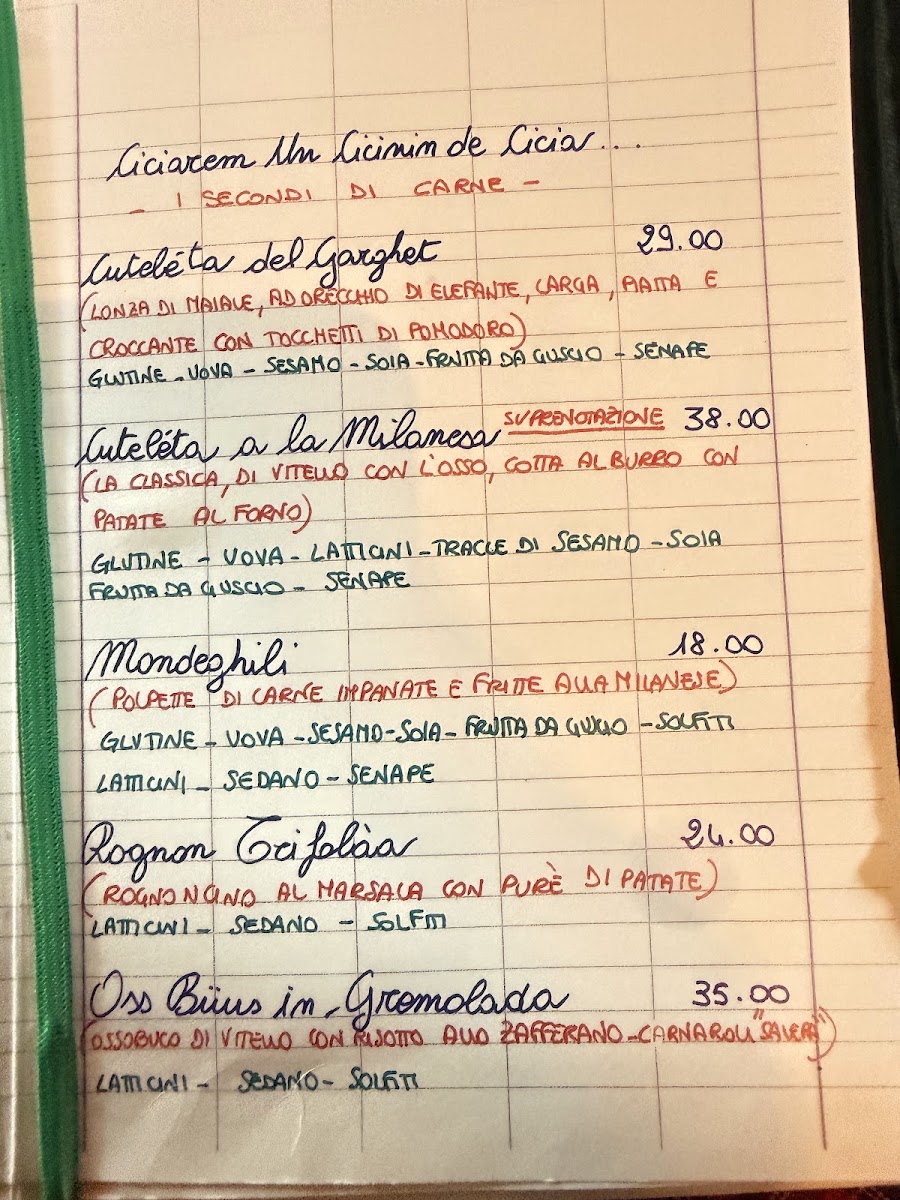 Ciciarem Un Cicinim de Cicia...
- I SECONDI DI CARNE -
Cuteléta del Garghet 29.00
(LONZA DI MAIALE, AD ORECCHIO DI ELEFANTE, LARGA, PIATTA E
CROCCANTE CON TOCCHETTI DI POMODORO)
GLUTINE - UOVA - SESAMO - SOIA - FRUTTA DA GUSCIO - SENAPE
Cuteléta a la Milanesa SU PRENOTAZIONE 38.00
(LA CLASSICA, DI VITELLO CON L'OSSO, COTTA AL BURRO CON
PATATE AL FORNO)
GLUTINE - UOVA - LATTICINI - TRACCE DI SESAMO - SOIA
FRUTTA DA GUSCIO - SENAPE
Mondeghili 18.00
(POLPETTE DI CARNE IMPANATE E FRITTE ALLA MILANESE)
GLUTINE - UOVA - SESAMO - SOIA - FRUTTA DA GUSCIO - SOLFITI
LATTICINI - SEDANO - SENAPE
Rognon Trifolàa 24.00
(ROGNONCINO AL MARSALA CON PURÈ DI PATATE)
LATTICINI - SEDANO - SOLFITI
Oss Büus in Gremolada 35.00
(OSSOBUCO DI VITELLO CON RISOTTO ALLO ZAFFERANO - CARNAROLI
LATTICINI - SEDANO - SOLFITI